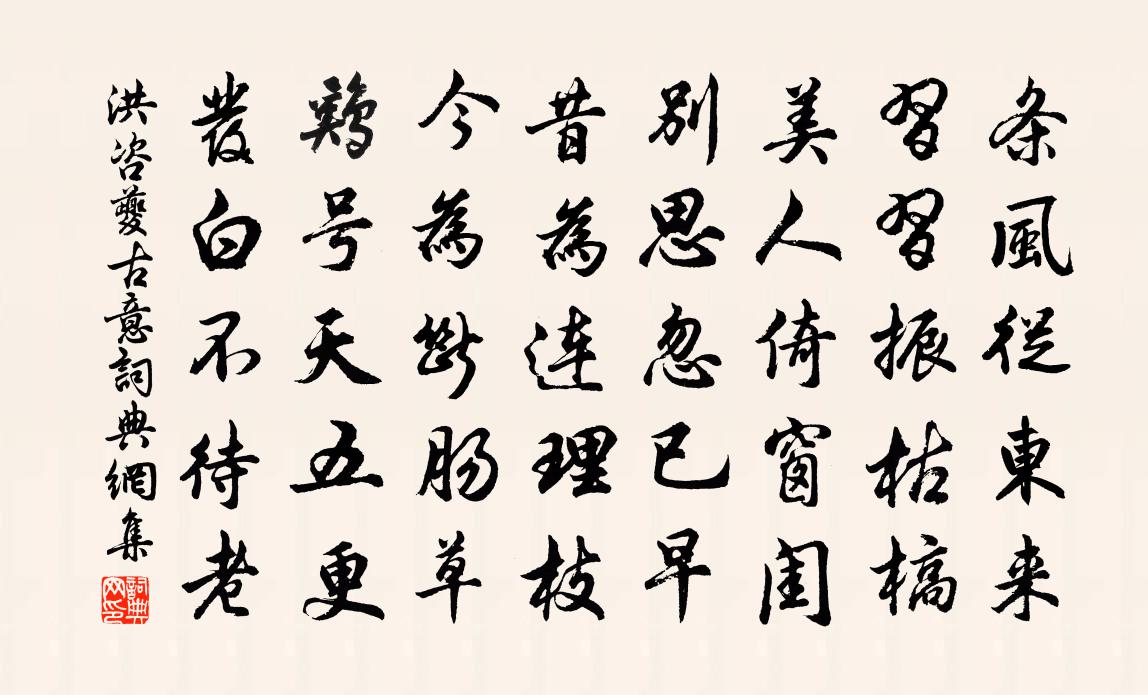 条風従東来
習習振枯槁
美人倚窗闺
别思忽已早
昔為連理枝
今為斷肠草
鷄号天五更
發白不待老
洪咨夔古意詞典網集
詞典网印